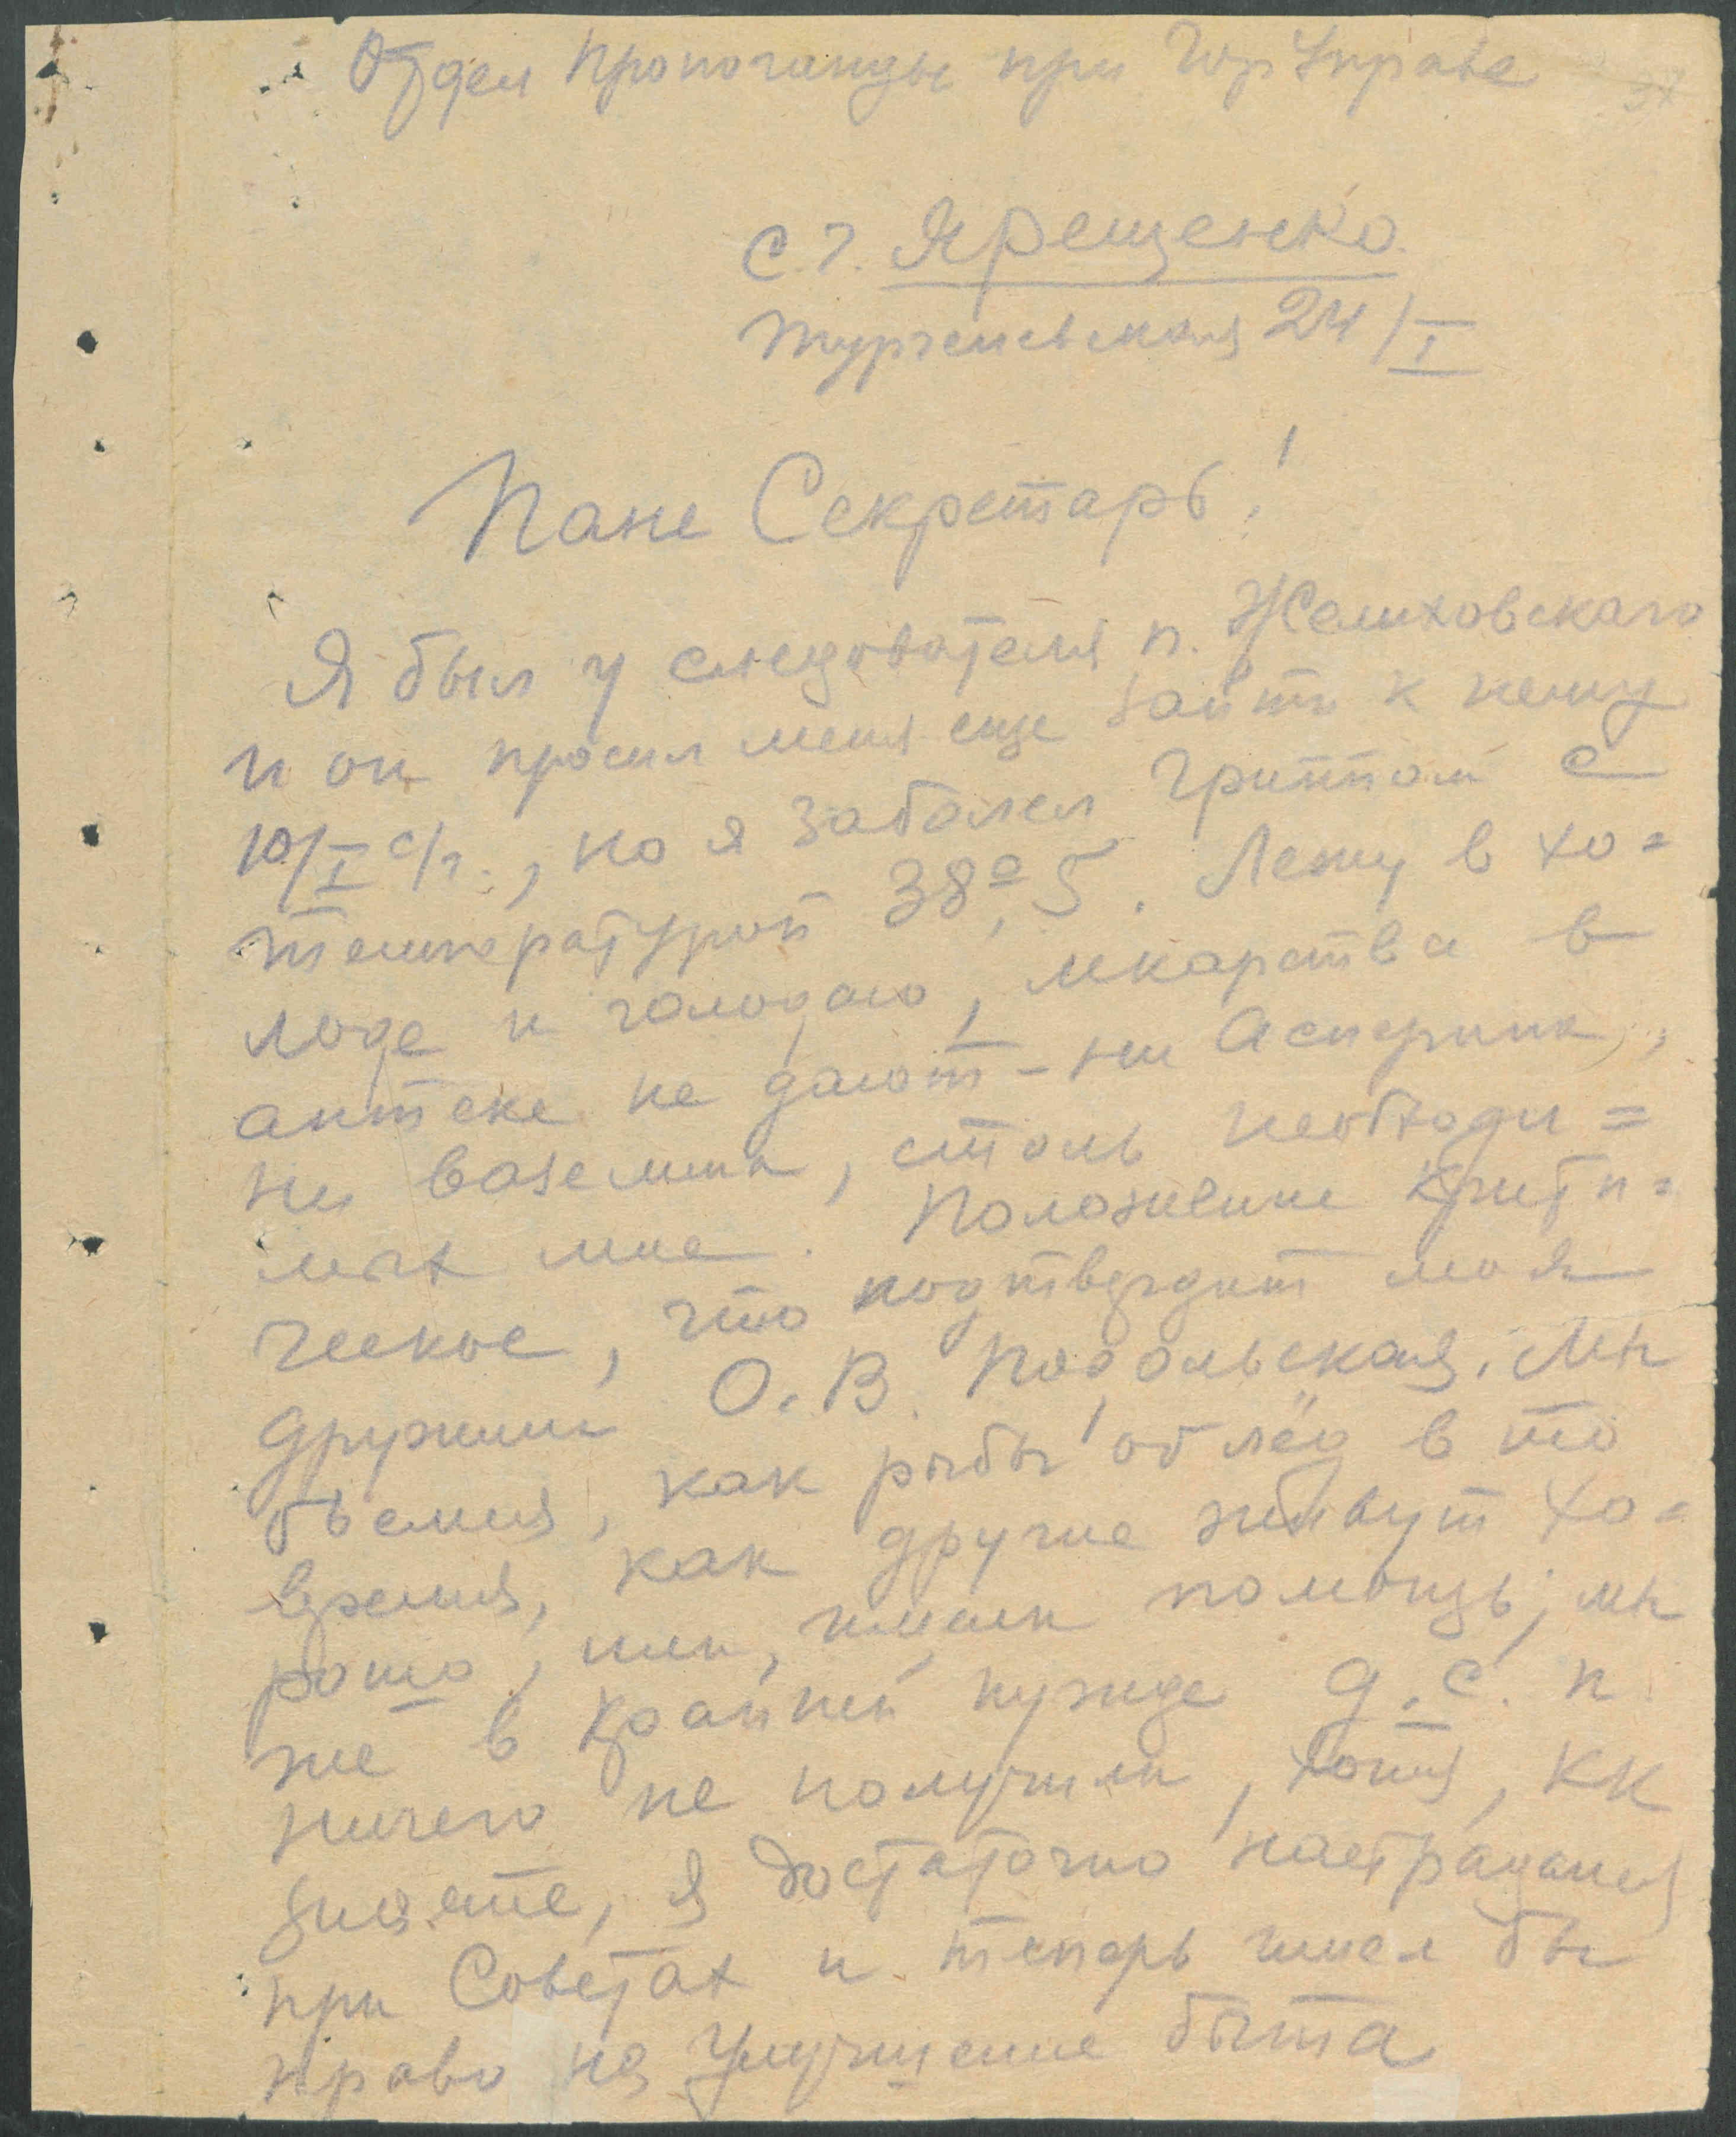 Отдел Пропоганды при ГорУправе
37
С. Г. Ярещенко
Тургеневская 24/I
Пане Секретарь!
Я был у следователя п. Желиховскаго
и он просил меня еще зайти к нему
10/I с/г., но я заболел гриппом с
температурой 38°,5. Лежу в хо=
лоде и голодаю, лекарства в
аптеке не дают - ни Асперина,
ни вазелина, столь необходи=
мых мне. Положение крити=
ческое, что подтвердит моя
дружина О. В. Подольская. Мы
бьемся, как рыбы об лёд в то
время, как другие живут хо=
рошо, или, имели помощь; мы
же в крайней нужде д. с. п.
ничего не получили, хотя, кк
знаете, я достаточно настрадался
при Советах и теперь имел бы
право на улучшение быта